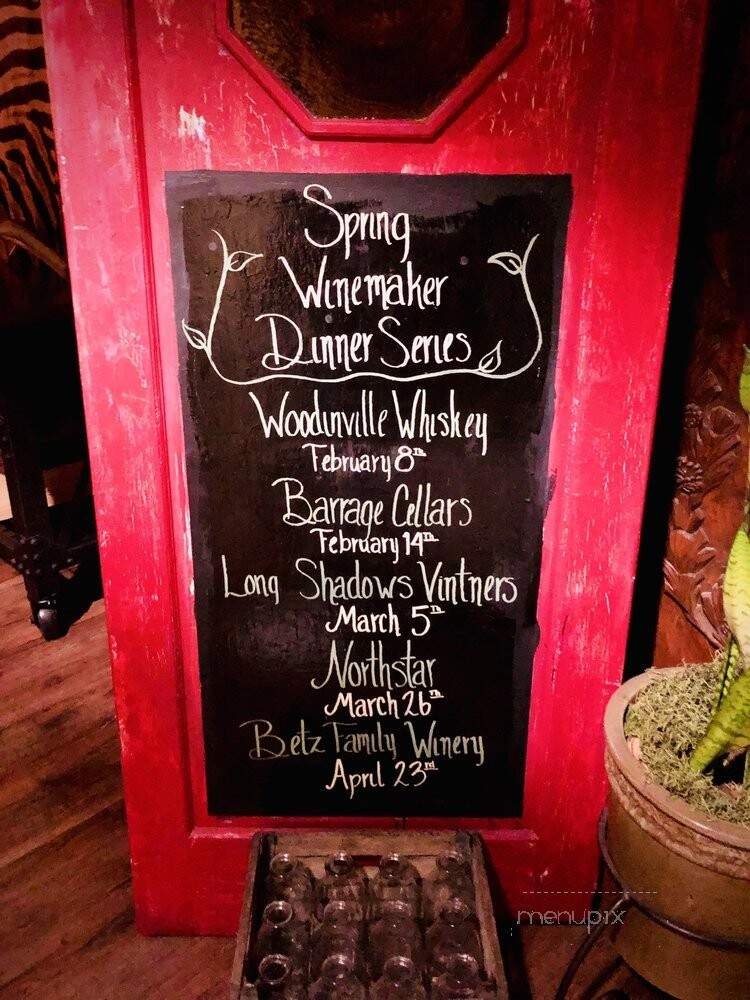 Spring
Winemaker
Dinner Series
Woodinville Whiskey
February 8th
Barrage Cellars
February 14th
Long Shadows Vintners
March 5th
Northstar
March 26th
Betz Family Winery
April 23rd
menupix